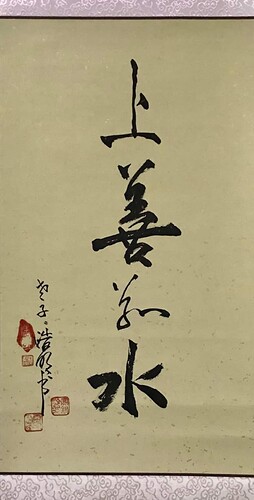 上善若水
老子。浩明书